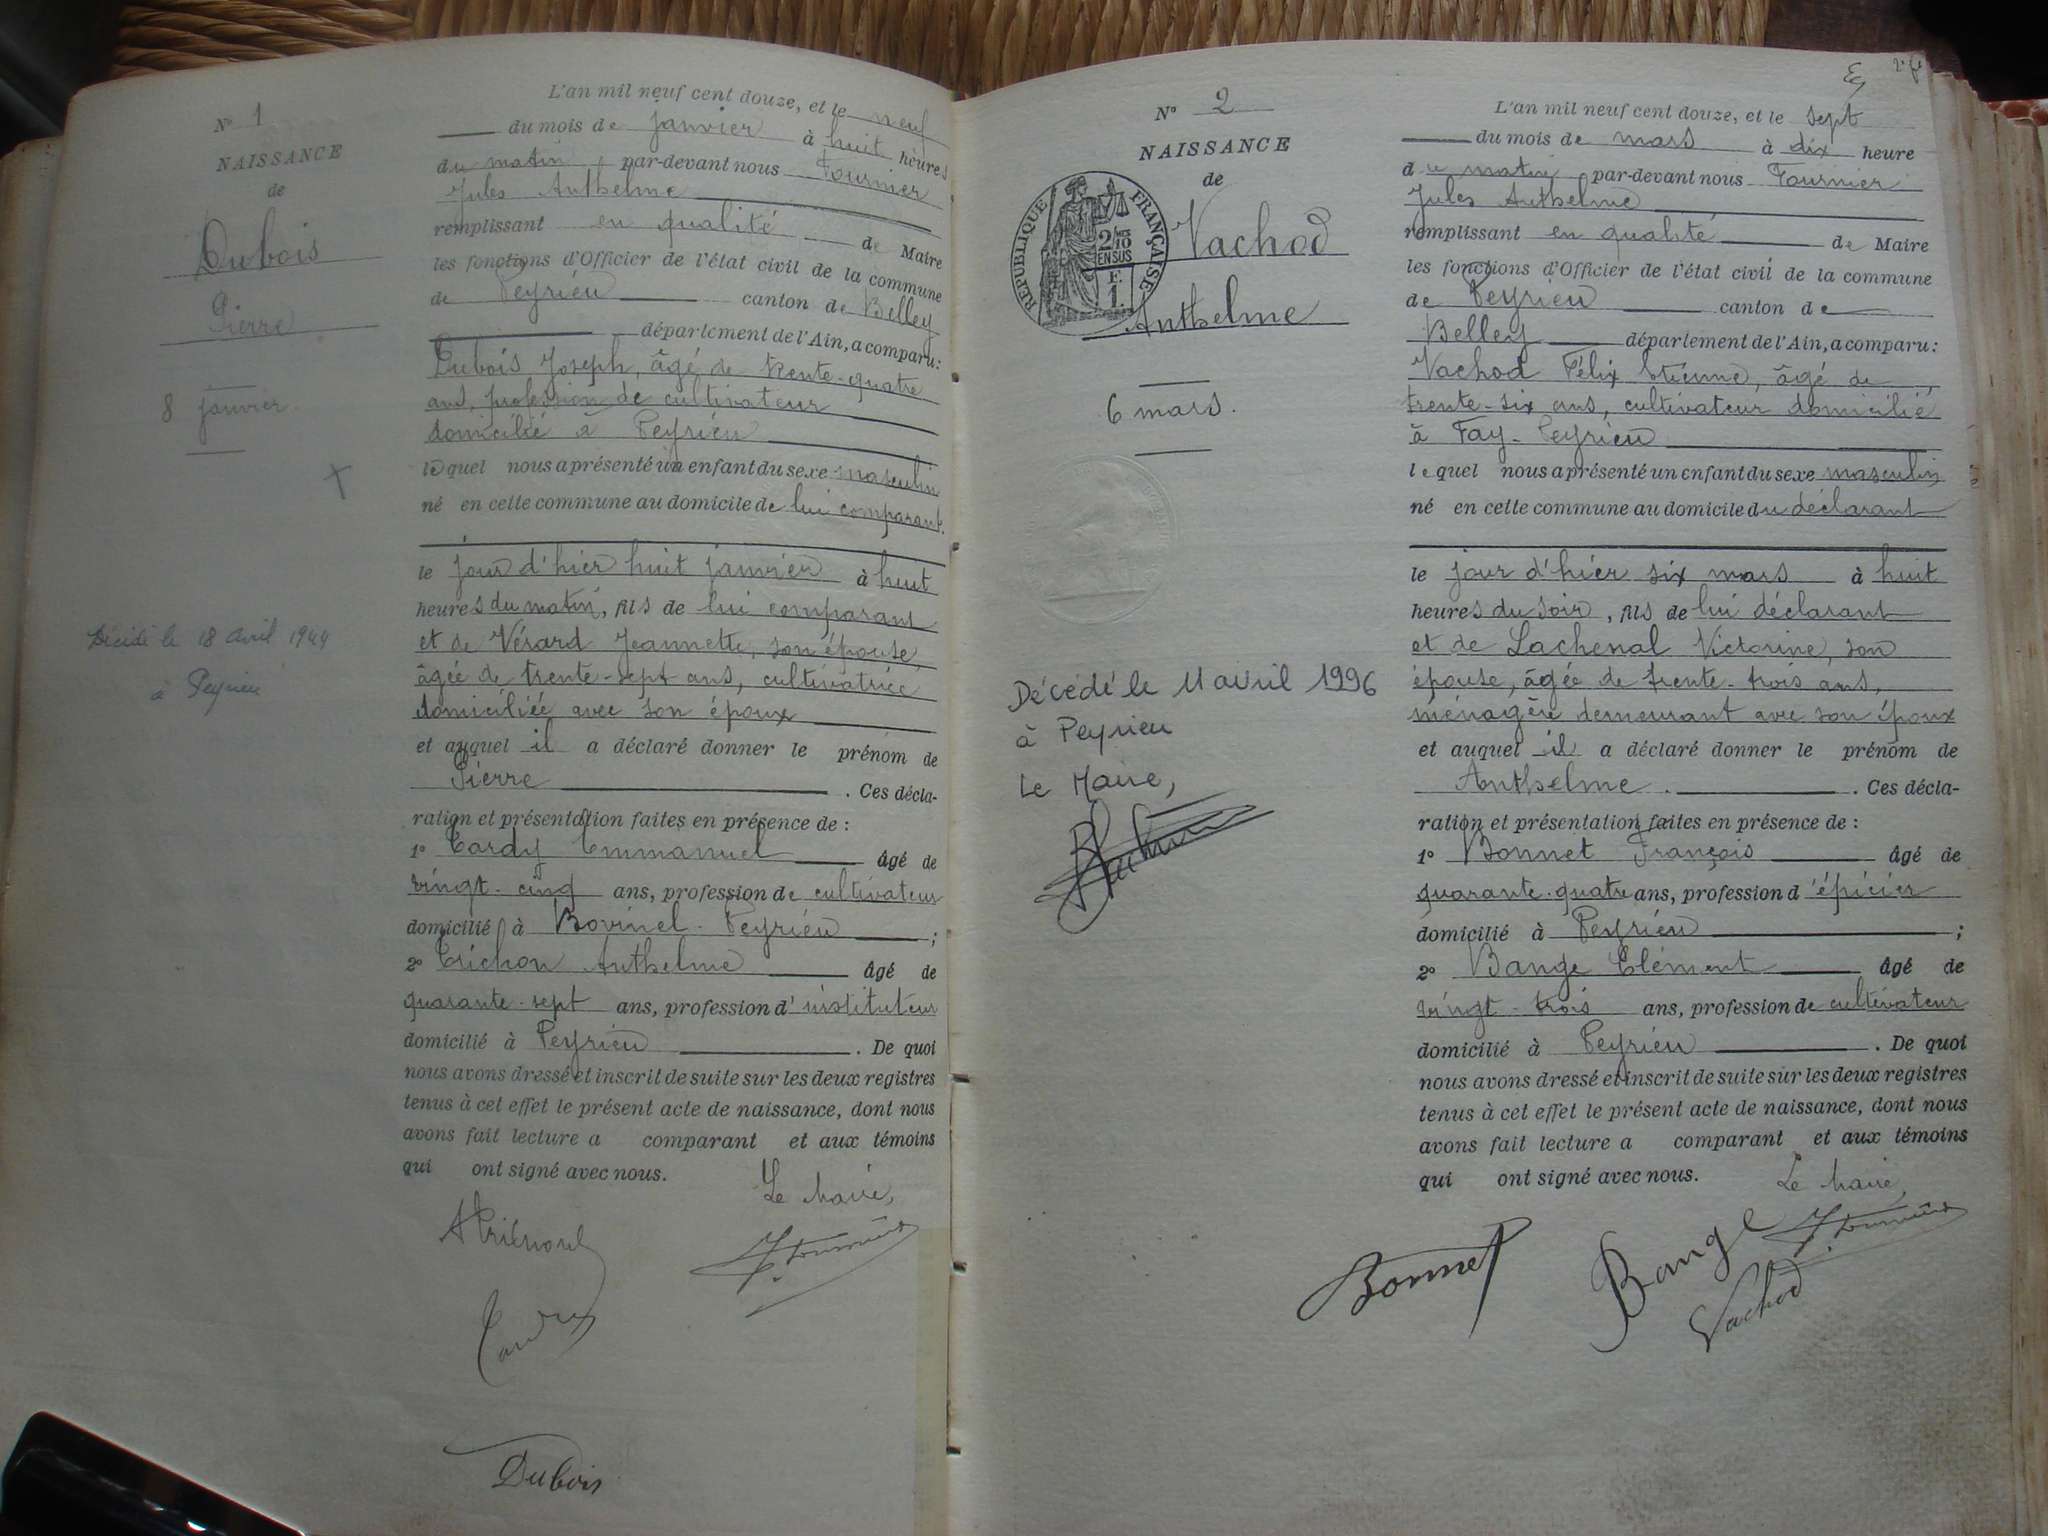 N° 1
NAISSANCE
de
Dubois
Pierre
8 janvier
Décédé le 18 avril 1944
à Peyrieu
L'an mil neuf cent douze, et le neuf
du mois de janvier à huit heures
du matin par-devant nous Fournier
Jules Anthelme
remplissant en qualité de Maire
les fonctions d'Officier de l'état civil de la commune
de Peyrieu canton de Belley
département de l'Ain, a comparu:
Dubois Joseph, âgé de trente-quatre
ans, profession de cultivateur
domicilié à Peyrieu
lequel nous a présenté un enfant du sexe masculin
né en cette commune au domicile de lui comparant.
le jour d'hier huit janvier à huit
heures du matin, fils de lui comparant
et de Vérard Jeannette, son épouse,
âgée de trente-sept ans, cultivatrice
domiciliée avec son époux
et auquel il a déclaré donner le prénom de
Pierre . Ces décla-
ration et présentation faites en présence de :
1° Tardy Emmanuel âgé de
vingt-cinq ans, profession de cultivateur
domicilié à Bovinel-Peyrieu ;
2° Anthelme âgé de
quarante-sept ans, profession d'instituteur
domicilié à Peyrieu . De quoi
nous avons dressé et inscrit de suite sur les deux registres
tenus à cet effet le présent acte de naissance, dont nous
avons fait lecture a comparant et aux témoins
qui ont signé avec nous.
Le Maire,
J. Fournier
Tardy
Dubois
N° 2
NAISSANCE
de
RÉPUBLIQUE FRANÇAISE
2/10 EN SUS
F.
1.
Vachod
Anthelme
6 mars.
Décédé le 11 avril 1996
à Peyrieu
Le Maire,
L'an mil neuf cent douze, et le sept
du mois de mars à dix heure
du matin par-devant nous Fournier
Jules Anthelme
remplissant en qualité de Maire
les fonctions d'Officier de l'état civil de la commune
de Peyrieu canton de
Belley département de l'Ain, a comparu:
Vachod Félix Etienne, âgé de
trente-six ans, cultivateur domicilié
à Fay-Peyrieu
lequel nous a présenté un enfant du sexe masculin
né en cette commune au domicile du déclarant
le jour d'hier six mars à huit
heures du soir, fils de lui déclarant
et de Lachenal Victorine, son
épouse, âgée de trente-trois ans,
ménagère demeurant avec son époux
et auquel il a déclaré donner le prénom de
Anthelme . Ces décla-
ration et présentation faites en présence de :
1° Bonnet François âgé de
quarante-quatre ans, profession d'épicier
domicilié à Peyrieu ;
2° Bange Clément âgé de
vingt-trois ans, profession de cultivateur
domicilié à Peyrieu . De quoi
nous avons dressé et inscrit de suite sur les deux registres
tenus à cet effet le présent acte de naissance, dont nous
avons fait lecture a comparant et aux témoins
qui ont signé avec nous.
Le Maire,
J. Fournier
Bonnet
Bange
Vachod